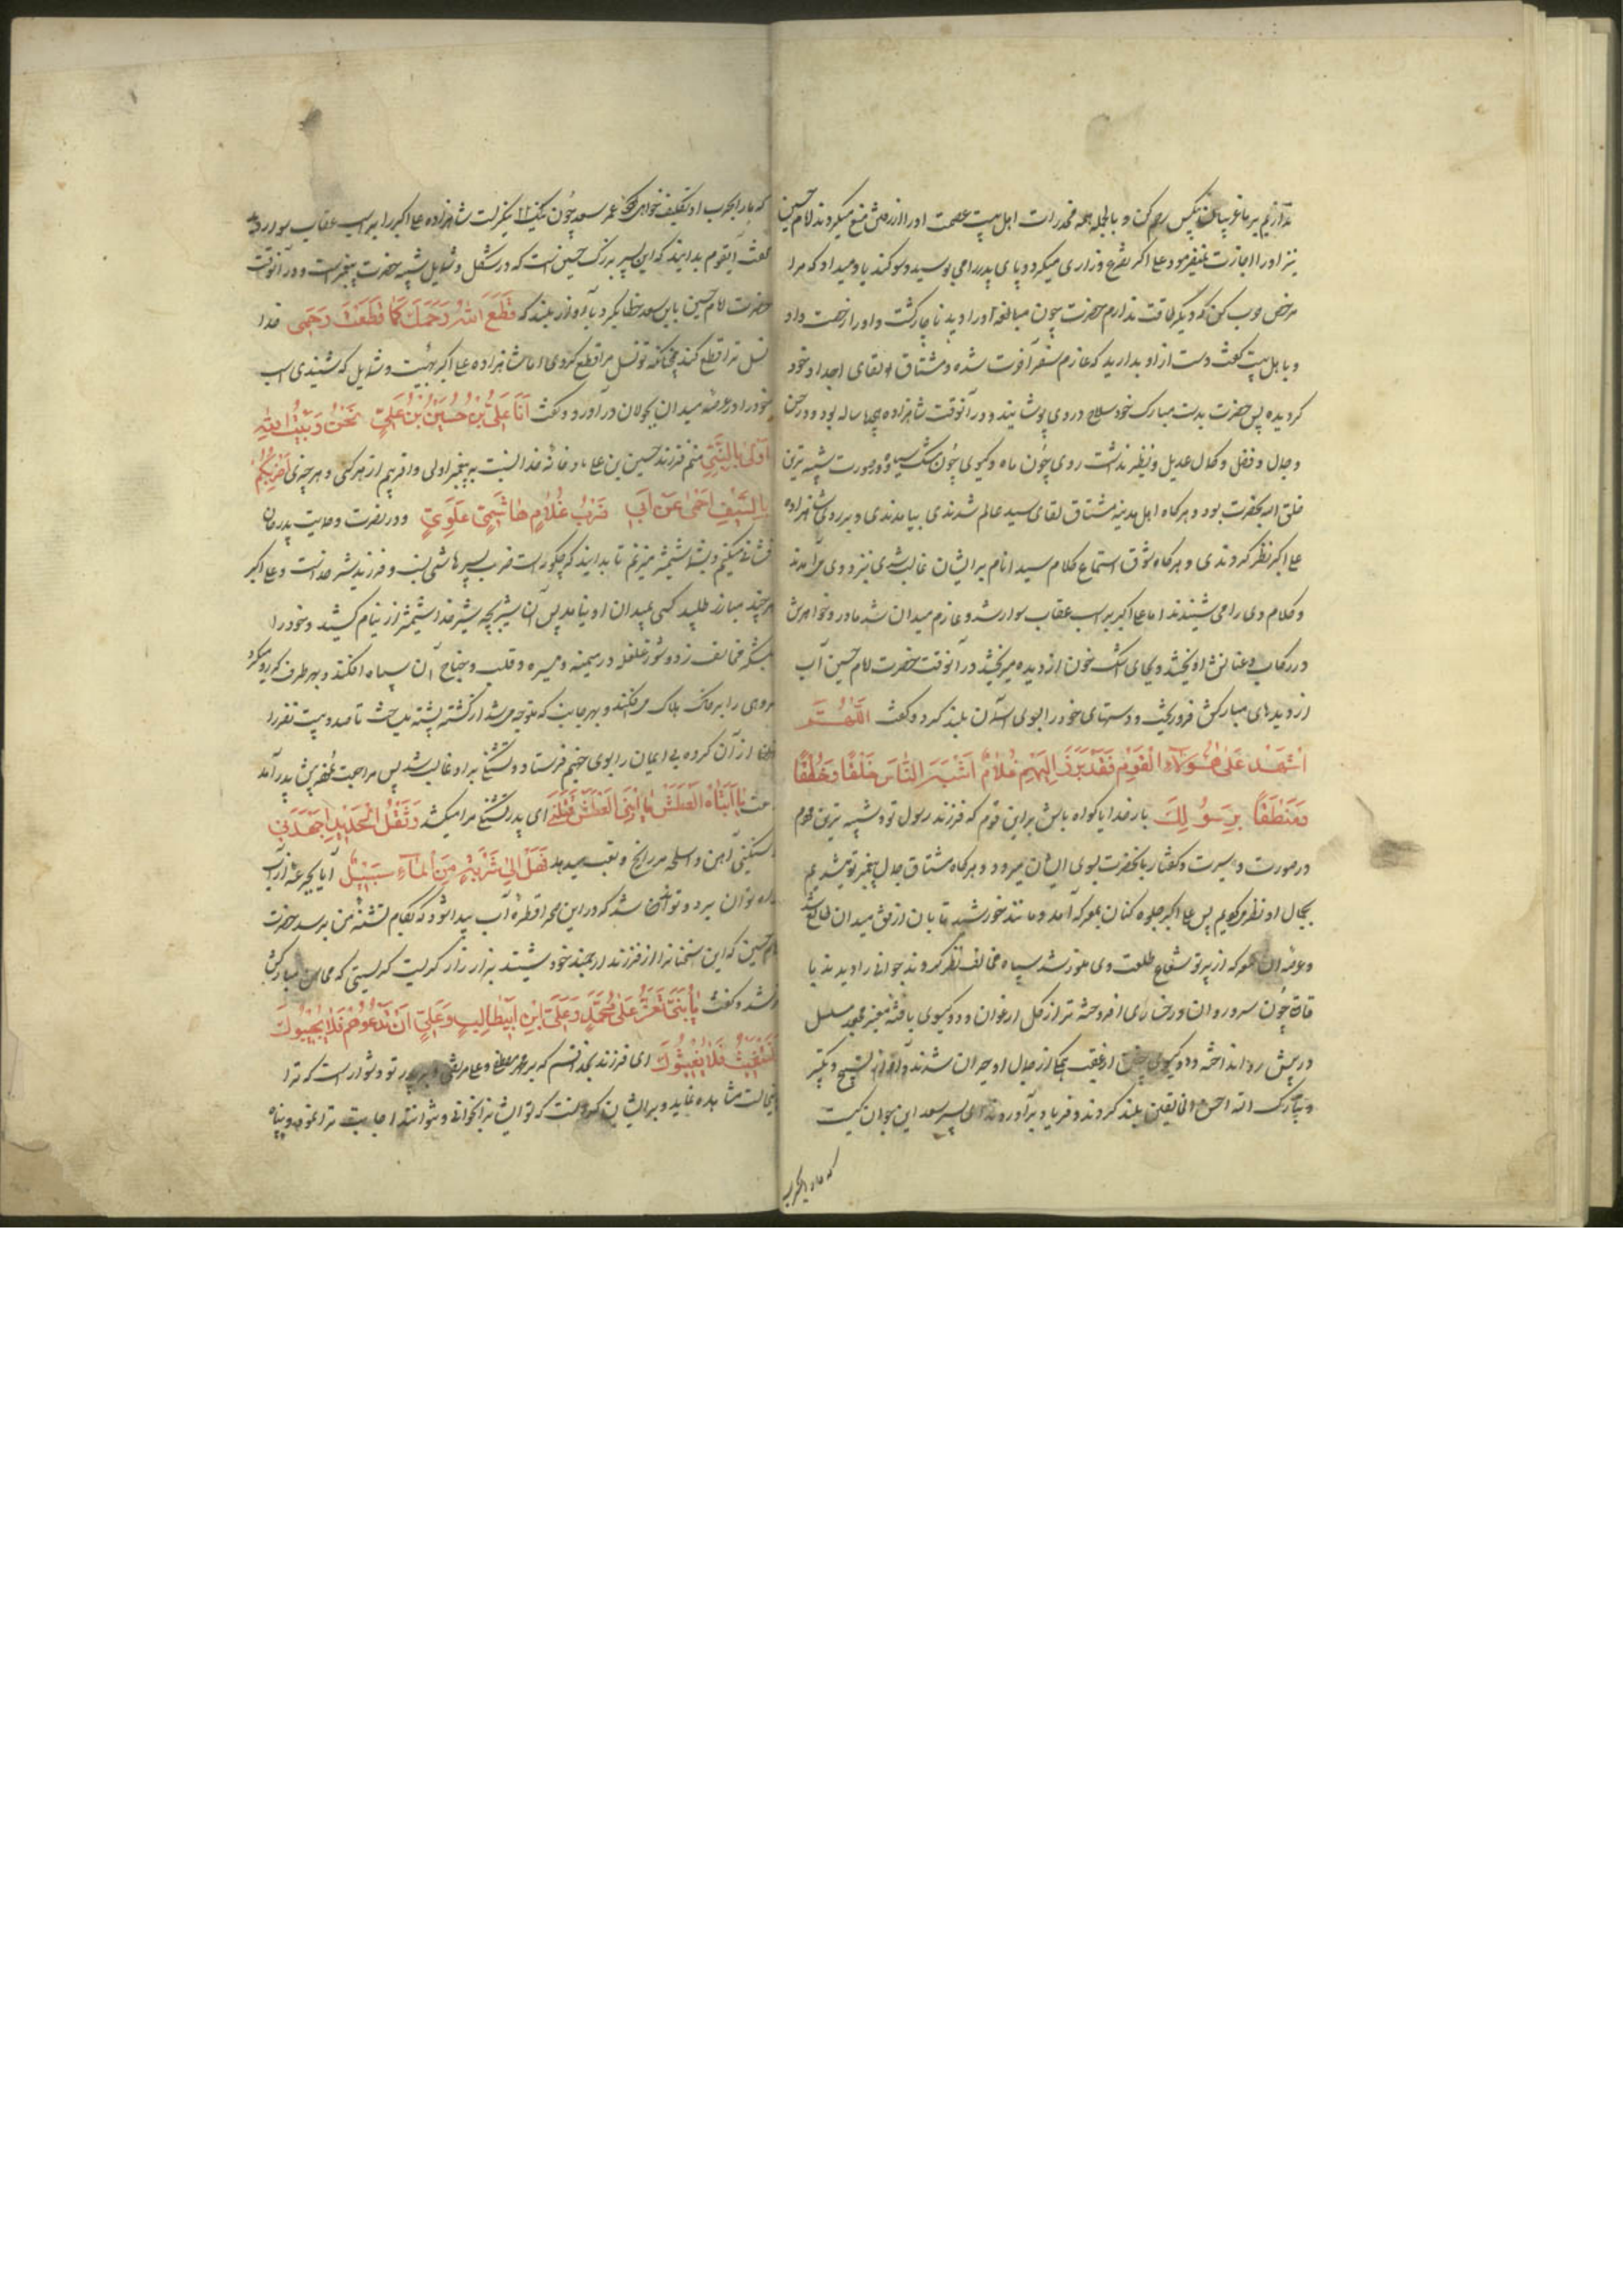 نداریم بر ما غریبان بیکس رحم کن و بالجمله همه مخدرات اهل بیت عصمت او را از رفتن منع میکردند امام حسین
نیز او را اجازت نمیفرمود علی اکبر تضرع و زاری میکرد و پای پدر را می بوسید و سوگند یاد میداد که مرا
مرخص کن که دیگر طاقت ندارم حضرت چون مبالغه او را دید ناچار گشت و او را رخصت داد
و با هل بیت گفت دست از او بدارید که عازم سفر آخرت شده و مشتاق لقای اجداد خود
کردیده پس حضرت بدست مبارک خود سلاح در وی پوشانید و در آنوقت شاهزاده ساله بود و در حسن
و جمال و فضل و کمال عدیل و نظیر نداشت روی چون ماه و گیسوی چون مشک سیاه و در صورت شبیه ترین
خلق الله بحضرت بود و هرکاه اهل مدینه مشتاق لقای سید عالم شدندی بیامدندی و بر روی شاهزاده
علی اکبر نظر کردندی و هرکاه شوق استماع کلام سید انام بر ایشان غالب شدی نیز دوی درآمدند
و کلام وی را می شنیدند اما علی اکبر بر اسب عقاب سوار شد و عازم میدان شد مادر و خواهرش
در رکاب و عنانش اویختند و بجای اشک خون از دیده میریختند در آنوقت حضرت امام حسین آب
از دیدهای مبارکش فرو ریخت و دستهای خود را بسوی آسمان بلند کرد و گفت اللّهُمَّ
اشْهَدْ عَلٰی هٰؤُلاءِ الْقَوْمِ فَقَدْ بَرَزَ اِلَیْهِمْ غُلامٌ اَشْبَهُ النّاسِ خَلْقًا وَ خُلُقًا
وَ مَنْطَقًا بِرَسُولِكَ بار خدایا کواه باش بر این قوم که فرزند رسول تو و شبیه ترین مردم
در صورت و سیرت و گفتار بآنحضرت بسوی ایشان میرود و هرکاه مشتاق جمال پیغمبر تو میشدیم
بجمال او نظر میکردیم پس علی اکبر جلوه کنان بمعرکه آمد و مانند خورشید تابان از افق میدان طالع شد
و عرصه آن معرکه از پرتو شعاع طلعت وی منور شد سپاه مخالف نظر کردند جوانی را دیدند با
قامت چون سرو روان و رخساری افروخته تر از گل ارغوان و دو گیسوی بافته معنبر مجعد مسلسل
در پیش رو انداخته و دو گیسوی از عقب همگی از جمال او حیران شدند و آواز تسبیح و تکبیر
و تبارک الله احسن الخالقین بلند کردند و فریاد برآوردند ای پسر سعد این جوان کیست
که ما را بحرب
که ما را بحرب او تکلیف خواهی کرد عمر سعد چون نیک نگریست شاهزاده علی اکبر را بر اسب عقاب سوار دید
گفت ایقوم بدانید که این پسر بزرک حسین است که در شکل و شمایل شبیه حضرت پیغمبر است و در آنوقت
حضرت امام حسین بابن سعد خطاب کرد بآواز بلند که قَطَعَ اللهُ رَحِمَكَ كَما قَطَعْتَ رَحِمی خدا
نسل ترا قطع کند چنانکه تو نسل مرا قطع کردی اما شاهزاده علی اکبر بهیئت و شمایل که شنیدی اسب
خود را در عرصه میدان بجولان درآورد و گفت اَنَا عَلِیُّ بْنُ حُسَیْنِ بْنِ عَلِیٍّ نَحْنُ وَ بَیْتِ اللهِ
اَوْلٰی بِالنَّبِیِّ منم فرزند حسین بن علی ما و خانه خدا النسبت به پیغمبر اولی و اقربیم از هرکس و هر چیزی اَضْرِبُكُمْ
بِالسَّیْفِ اَحْمی عَنْ اَبی ضَرْبَ غُلامٍ هاشِمِیٍّ عَلَوِیٍّ و در نصرت و حمایت پدر جان
فشانی میکنم و بشما شمشیر میزنم تا بدانید که چگونه است ضرب پسر هاشمی نسب و فرزند شیر خداست و علی اکبر
هرچند مبارز طلبید کسی بمیدان او نیامد پس آن شیر بچه شیر خدا شمشیر از نیام کشید و خود را
بلشکر مخالف زد و شور و غلغله در میمنه و میسره و قلب و جناح آن سپاه افکند و بهر طرف که رو میکرد
گروهی را بر خاک هلاک می افکند و بهر جانب که متوجه میشد از کشته پشته میساخت تا صد و بیست نفر را
از آن گروه بی ایمان را بسوی جهنم فرستاد و تشنگی بر او غالب شد پس مراجعت بخدمت پدر آمد
گفت یا اَبَتاهُ الْعَطَشُ قَتَلَنی ای پدر تشنگی مرا میکشد وَ ثِقْلُ الْحَدیدِ اَجْهَدَنی
سنگینی آهن و اسلحه مرا رنج و تعب میدهد فَهَلْ اِلٰی شَرْبَةٍ مِنَ الْماءِ سَبیلٌ آیا بجرعه از آب
راه توان برد و توانی شد که در این صحرا قطره آب پیدا شود که بکام تشنه من برسد حضرت
امام حسین که این سخنان را از فرزند ارجمند خود شنید بزار زار گریست گریستی که محاسن مبارکش
تر شد و گفت یا بُنَیَّ یَعِزُّ عَلٰی مُحَمَّدٍ وَ عَلٰی عَلِیِّ ابْنِ اَبیطالِبٍ وَ عَلَیَّ اَنْ تَدْعُوَهُمْ فَلا یُجیبُوكَ
تَسْتَغیثُ فَلا یُغیثُوكَ ای فرزند بخدا قسم که بر محمد مصطفی و علی مرتضی و بر پدر تو دشوار است که ترا
بدینحالت مشاهده نماید و بر ایشان گرانست که تو ایشان را بخوانی و نتوانند اجابت ترا نمود و پناه